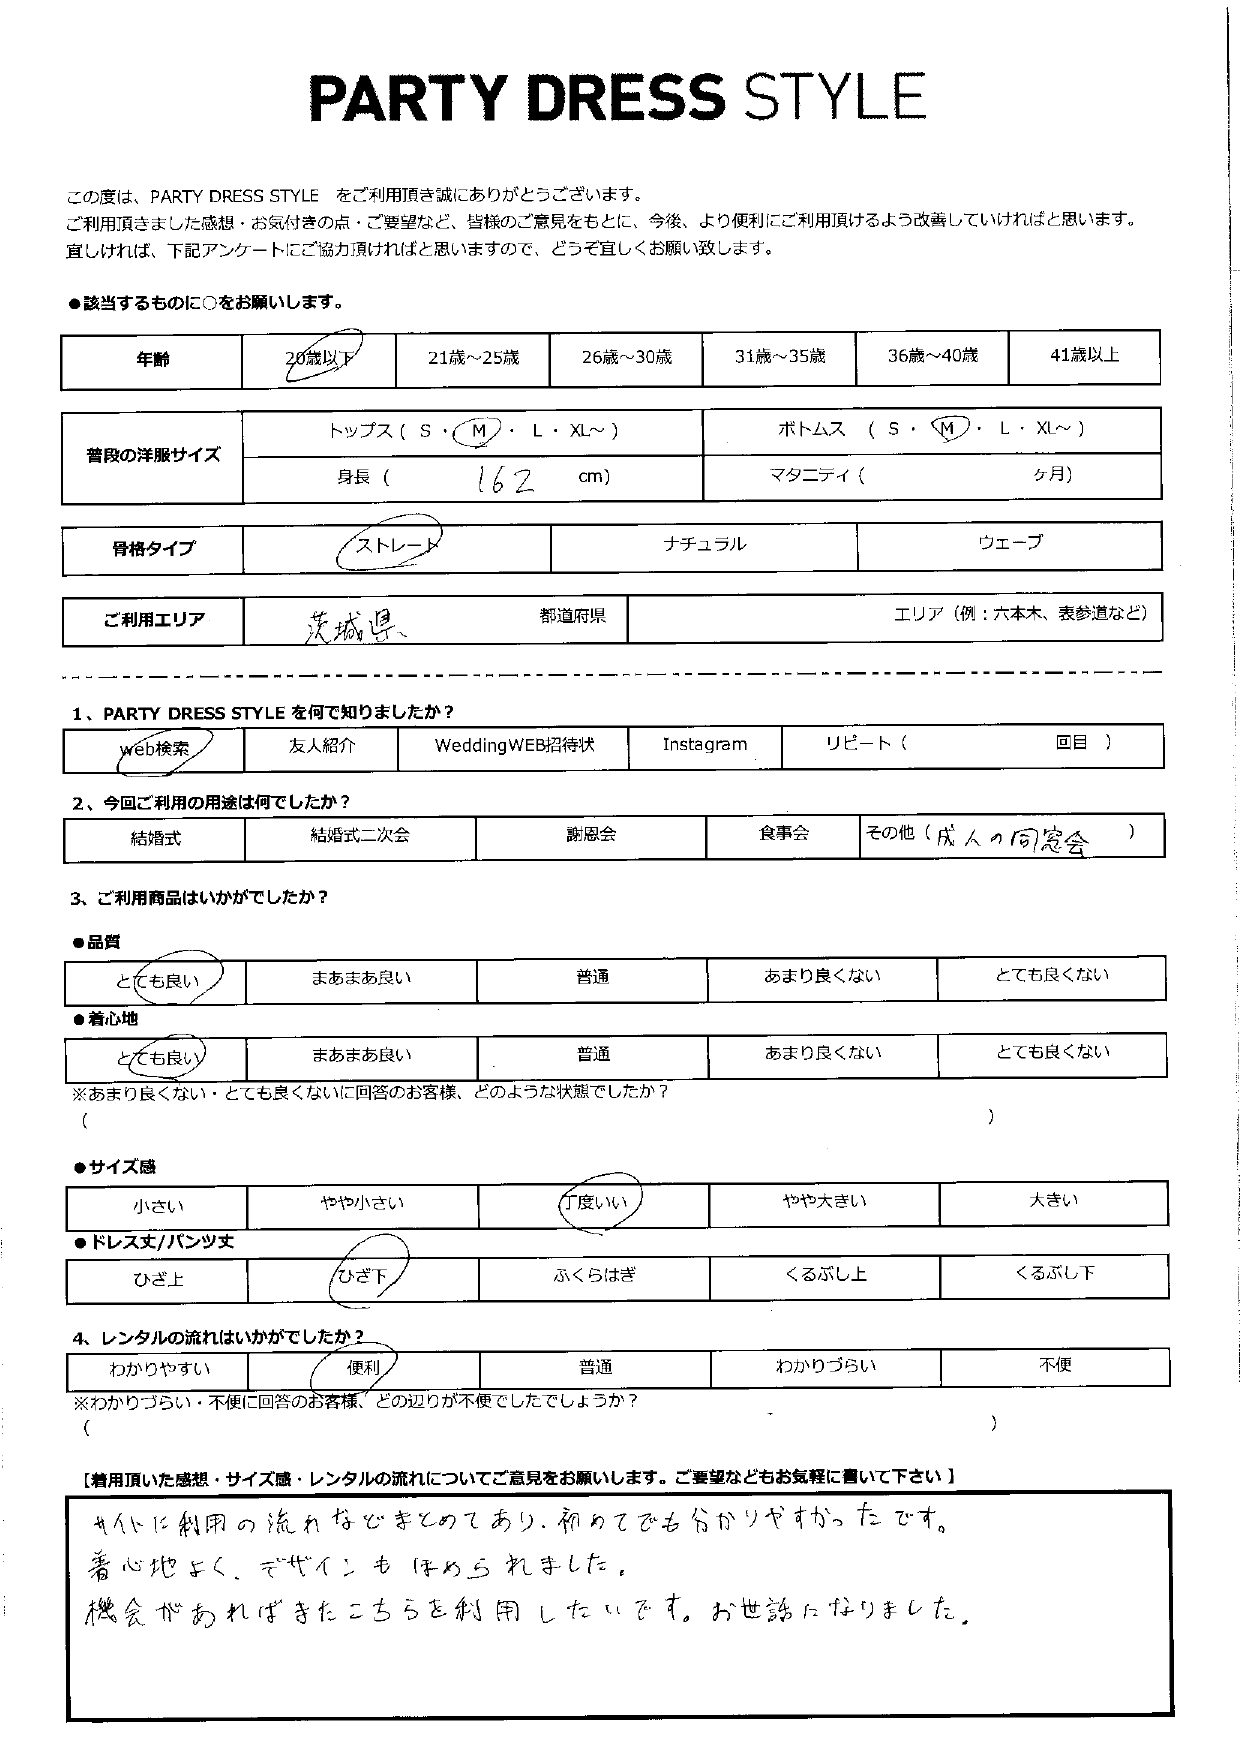 PARTY DRESS STYLE
この度は、PARTY DRESS STYLE をご利用頂き誠にありがとうございます。
ご利用頂きました感想・お気付きの点・ご要望など、皆様のご意見をもとに、今後、より便利にご利用頂けるよう改善していければと思います。
宜しければ、下記アンケートにご協力頂ければと思いますので、どうぞ宜しくお願い致します。
●該当するものに○をお願いします。
年齢 20歳以下 21歳～25歳 26歳～30歳 31歳～35歳 36歳～40歳 41歳以上
普段の洋服サイズ
トップス ( S ・ M ・ L ・ XL～ ) ボトムス ( S ・ M ・ L ・ XL～ )
身長 ( 162 cm) マタニティ ( ヶ月)
骨格タイプ ストレート ナチュラル ウェーブ
ご利用エリア 茨城県 都道府県 エリア（例：六本木、表参道など）
1、PARTY DRESS STYLE を何で知りましたか？
web検索 友人紹介 WeddingWEB招待状 Instagram リピート ( 回目 )
2、今回ご利用の用途は何でしたか？
結婚式 結婚式二次会 謝恩会 食事会 その他 ( 成人の同窓会 )
3、ご利用商品はいかがでしたか？
●品質
とても良い まあまあ良い 普通 あまり良くない とても良くない
●着心地
とても良い まあまあ良い 普通 あまり良くない とても良くない
※あまり良くない・とても良くないに回答のお客様、どのような状態でしたか？
( )
●サイズ感
小さい やや小さい 丁度いい やや大きい 大きい
●ドレス丈/パンツ丈
ひざ上 ひざ下 ふくらはぎ くるぶし上 くるぶし下
4、レンタルの流れはいかがでしたか？
わかりやすい 便利 普通 わかりづらい 不便
※わかりづらい・不便に回答のお客様、どの辺りが不便でしたでしょうか？
( )
【着用頂いた感想・サイズ感・レンタルの流れについてご意見をお願いします。ご要望などもお気軽に書いて下さい】
サイトに利用の流れなどまとめてあり、初めてでも分かりやすかったです。
着心地よく、デザインもほめられました。
機会があればまたこちらを利用したいです。お世話になりました。